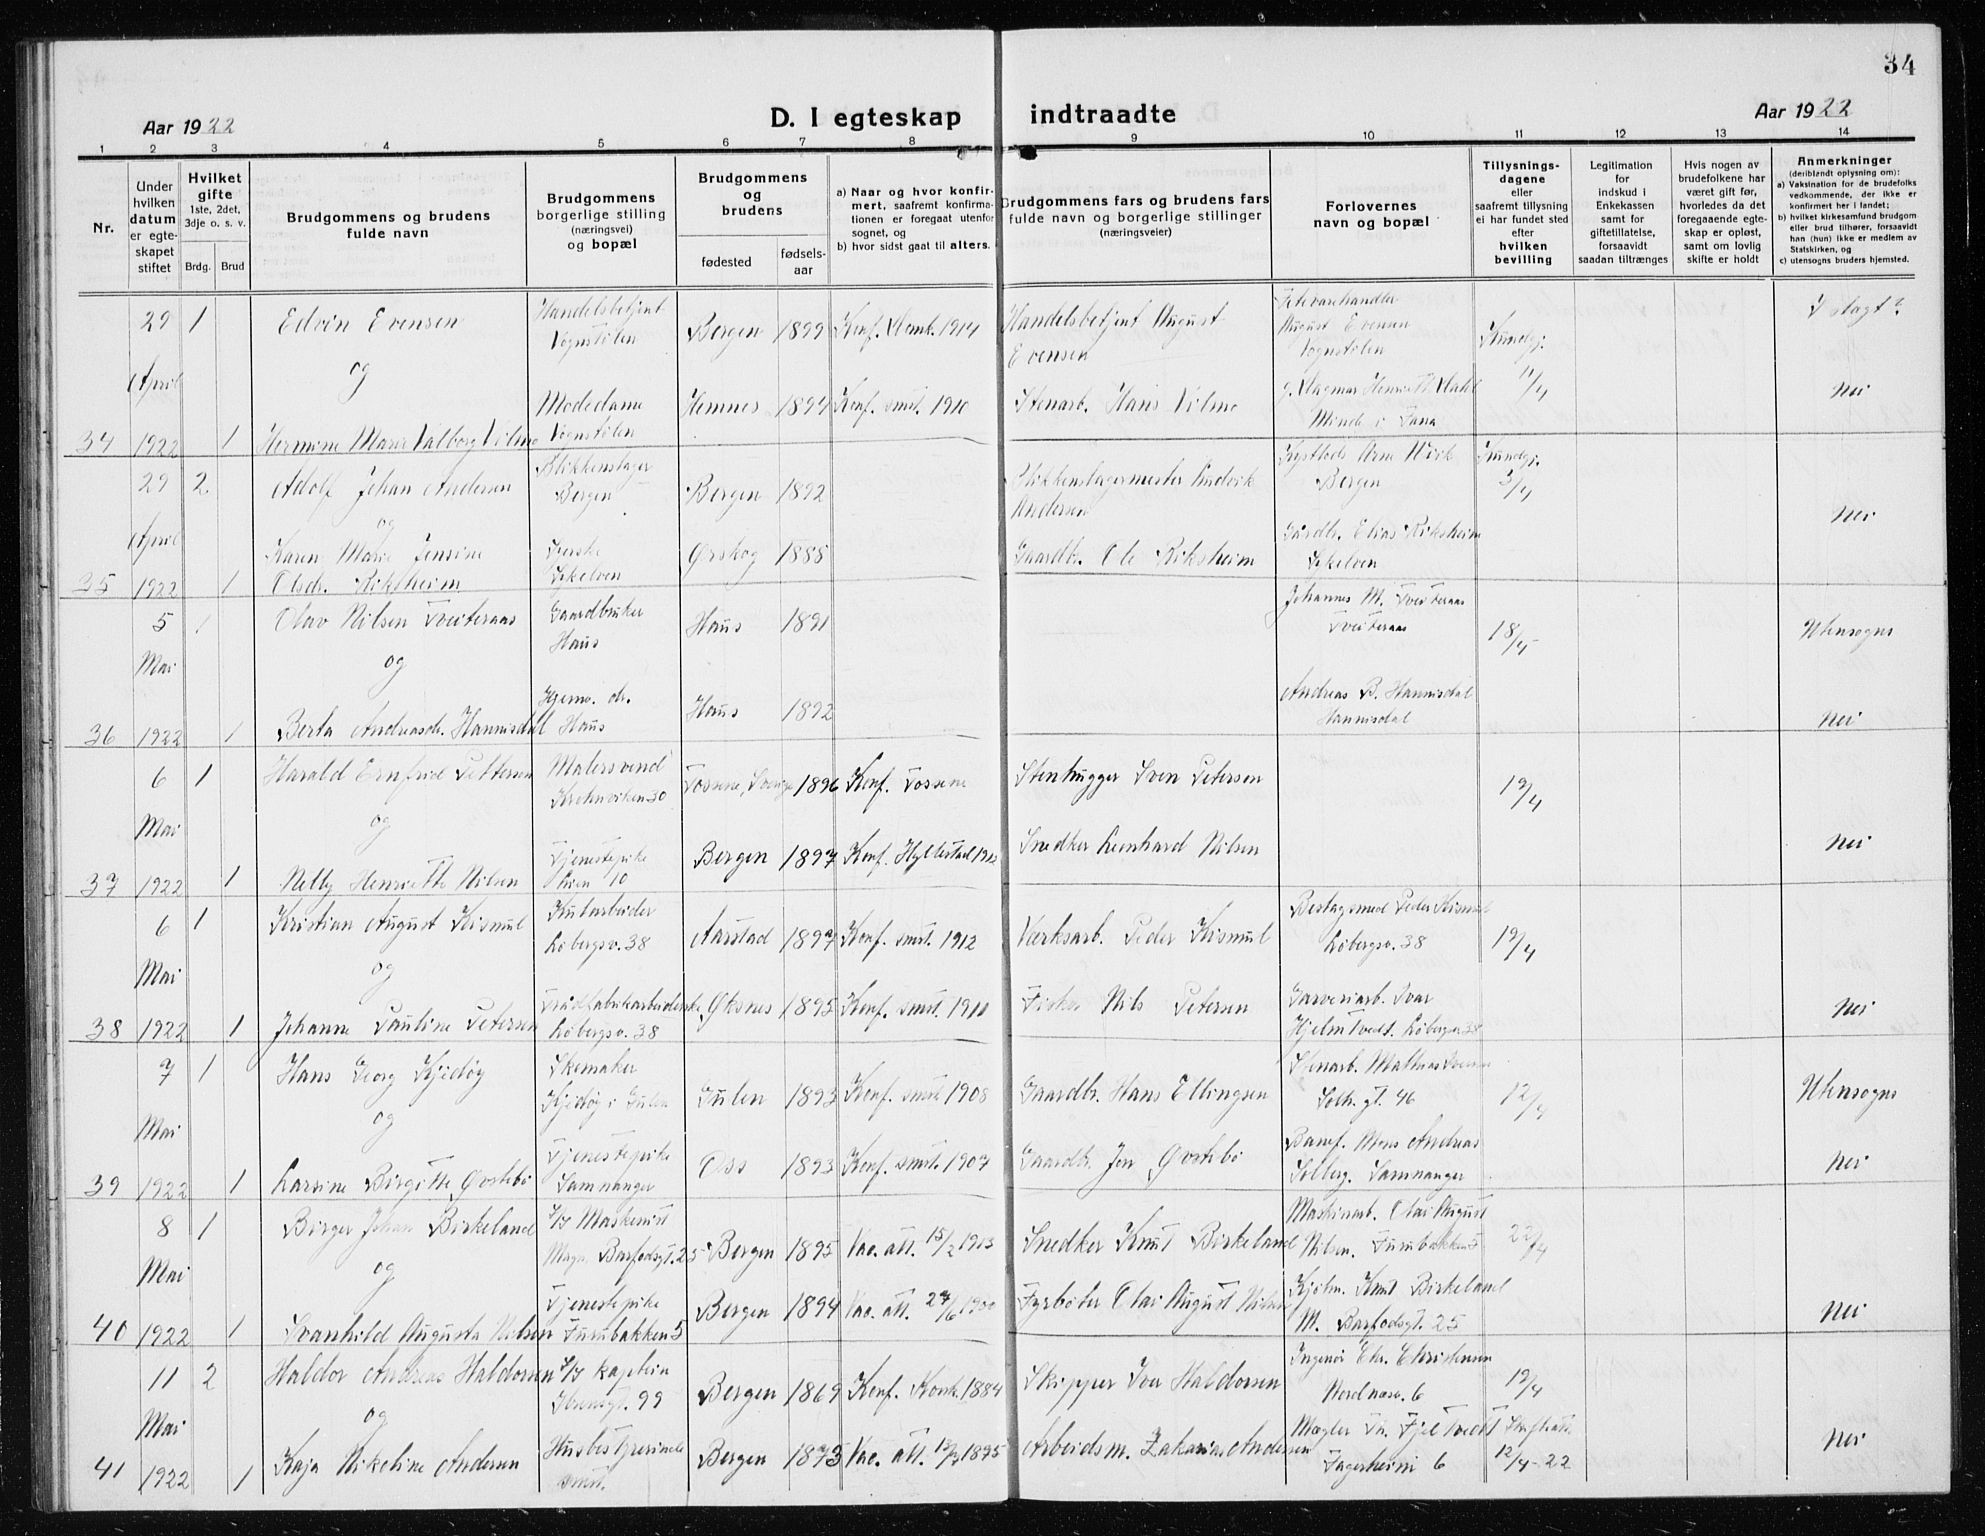 34
Aar 1922
D. I egteskap indtraadte
Aar 1922
1 2 3 4 5 6 7 8 9 10 11 12 13 14
Nr.
Under
hvilken
datum
er egte-
skapet
stiftet
Hvilket
gifte
1ste, 2det,
3dje o. s. v.
Brdg. Brud
Brudgommens og brudens
fulde navn
Brudgommens
borgerlige stilling
(næringsvei)
og bopæl
Brudgommens
og
brudens
fødested
fødsels-
aar
a) Naar og hvor konfir-
mert, saafremt konfirma-
tionen er foregaat utenfor
sognet, og
b) hvor sidst gaat til alters.
Brudgommens fars og brudens fars
fulde navn og borgerlige stillinger
(næringsveier)
Forlovernes
navn og bopæl
Tillysnings-
dagene
eller
saafremt tillysning
ei har fundet sted
efter
hvilken
bevilling
Legitimation
for
indskud i
Enkekassen
samt for
giftetillatelse,
forsaavidt
saadan tiltrænges
Hvis nogen av
brudefolkene har
været gift før,
hvorledes da det
foregaaende egte-
skap er opløst,
samt om lovlig
skifte er holdt
Anmerkninger
(deriblandt oplysning om):
a) Vaksination for de brudefolks
vedkommende, der ikke er
konfirmert her i landet;
b) hvilket kirkesamfund brudgom
eller brud tilhører, forsaavidt
han (hun) ikke er medlem av
Statskirken, og
c) utensogns bruders hjemsted.
34
29 April 1922
1
1
Edvin Evensen
og
Hermine Marie Valborg Vilmo
Handelsbetjent
Vognstølen
Modedame
Vognstølen
Bergen 1899
Hemnes 1894
Konf. Domk. 1914
Konf. smst. 1910
Handelsbetjent August
Evensen
Stenarb. Hans Vilmo
August Evensen
Vognstølen
Minde i Fana
Kundgj.
11/4
I slagt?
Nei
35
29 April 1922
2
1
Adolf Johan Andersen
og
Karen Marie Jensine
Olsdr. Riksheim
Blikkenslager
Bergen
Bergen 1892
Ørskog 1888
Blikkenslagermester Ludvik
Andersen
Gaardbr. Ole Riksheim
Bergen
Gardbr. Elias Riksheim
Kundgj.
3/4
Nei
36
5 Mai 1922
1
1
Olav Nilsen Tveiteraas
og
Berta Andreasdr. Hannisdal
Gaardbruker
Haus
Hjemv. dr.
Haus
Haus 1891
Haus 1892
Johannes M. Tveiteraas
Tveiteraas
Andreas B. Hannisdal
Hannisdal
18/4
Utensogns
Nei
37
6 Mai 1922
1
1
Harald Ernfrid Pettersen
og
Nelly Henriette Nilsen
Malersvend
Krohnviken 30
Tjenestepike
Lien 10
Tossene, Sverige 1896
Bergen 1897
Konf. Tossene
Konf. Hyllestad 1912
Stenhugger Sven Petersen
Snedker Leonhard Nilsen
19/4
Nei
38
6 Mai 1922
1
1
Kristian August Kismul
og
Johanne Pauline Petersen
Kularbeider
Løbergsv. 38
Trådfabrikarbeiderske
Løbergsv. 38
Aarstad 1897
Øksnes 1895
Konf. smst. 1912
Konf. smst. 1910
Værksarb. Peder Kismul
Fisker Nils Petersen
Beslagsmed Peder Kismul
Løbergsv. 38
Garveriarb. Ivar
Hjelmtvedt. Løbergsv. 38
19/4
Nei
39
7 Mai 1922
1
1
Hans Georg Kjidøy
og
Larsine Birgitte Øvstebø
Skomaker
Kjidøy i Gulen
Tjenestepike
Samnanger
Gulen 1893
Oss 1893
Konf. smst. 1908
Konf. smst. 1907
Gaardbr. Hans Ellingsen
Gaardbr. Jon Øvstebø
Stenarb. Mathias Iversen
Solh. gt. 46
Banef. Mons Andreas
Solberg. Samnanger
12/4
Utensogns
Nei
40
8 Mai 1922
1
1
Birger Johan Birkeland
og
Svanhild Augusta Nilsen
Maskinist
Magn. Barfodsgt. 25
Tjenestepike
Furubakken 5
Bergen 1895
Bergen 1894
Vac. att. 15/2 1913
Vac. att. 27/6 1900
Snedker Knut Birkeland
Fyrbøter Olai August Nilsen
Maskinarb. Olai August
Nilsen. Furubakken 5
Kjølm. Knut Birkeland
M. Barfodsgt. 25
22/4
Nei
41
11 Mai 1922
2
1
Haldor Andreas Haldorsen
og
Kaja Nikoline Andersen
Kaptein
Ibsensgt. 99
Husbestyrerinde
smst.
Bergen 1869
Bergen 1875
Konf. Korsk. 1884
Vac. att. 1875
Skipper Iver Haldorsen
Arbeidsm. Zakarias Andersen
Ingeniør Chr. Christensen
Nordnæsv. 6
Mægler Th. Fjeltvedt
Fagerheim 6
19/4
Skifteatt.
12/4-22
Nei